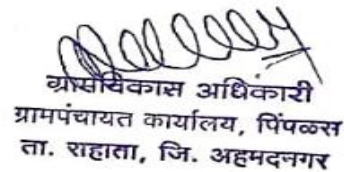 ग्रामविकास अधिकारी
ग्रामपंचायत कार्यालय, पिंपळस
ता. राहाता, जि. अहमदनगर